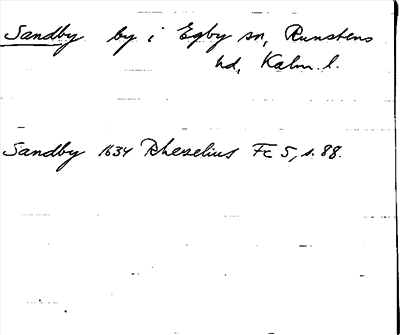 Sandby by i Egby sn, Runstens
hd, Kalm. l.
Sandby 1634 Rhezelius Fc 5, s. 88.